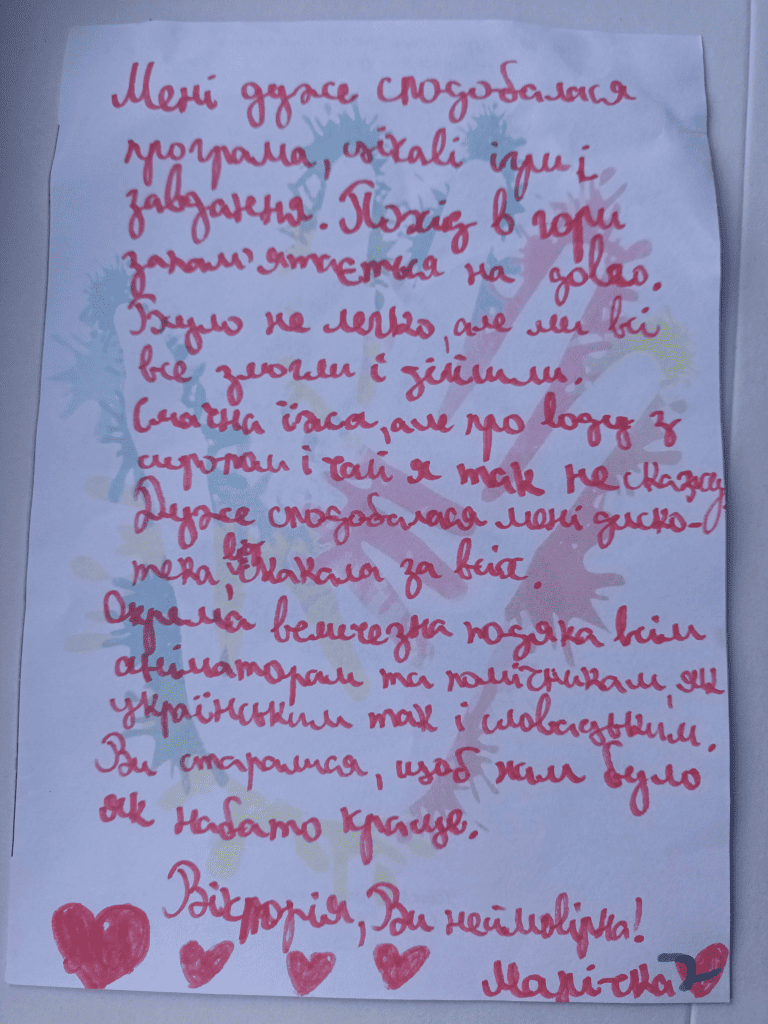 Мені дуже сподобалася
програма, цікаві ігри і
завдання. Похід в гори
запам'ятається на довго.
Було не легко, але ми всі
все змогли і дійшли.
Смачна їжа, але про воду з
сиропом і чай я так не скажу
Дуже сподобалася мені диско-
тека, скакала за всіх.
Окрема величезна подяка всім
аніматорам та помічникам, як
українським так і словацьким.
Ви старалися, щоб нам було
як набато краще.
Вікторія, Ви неймовірна!
Марічка